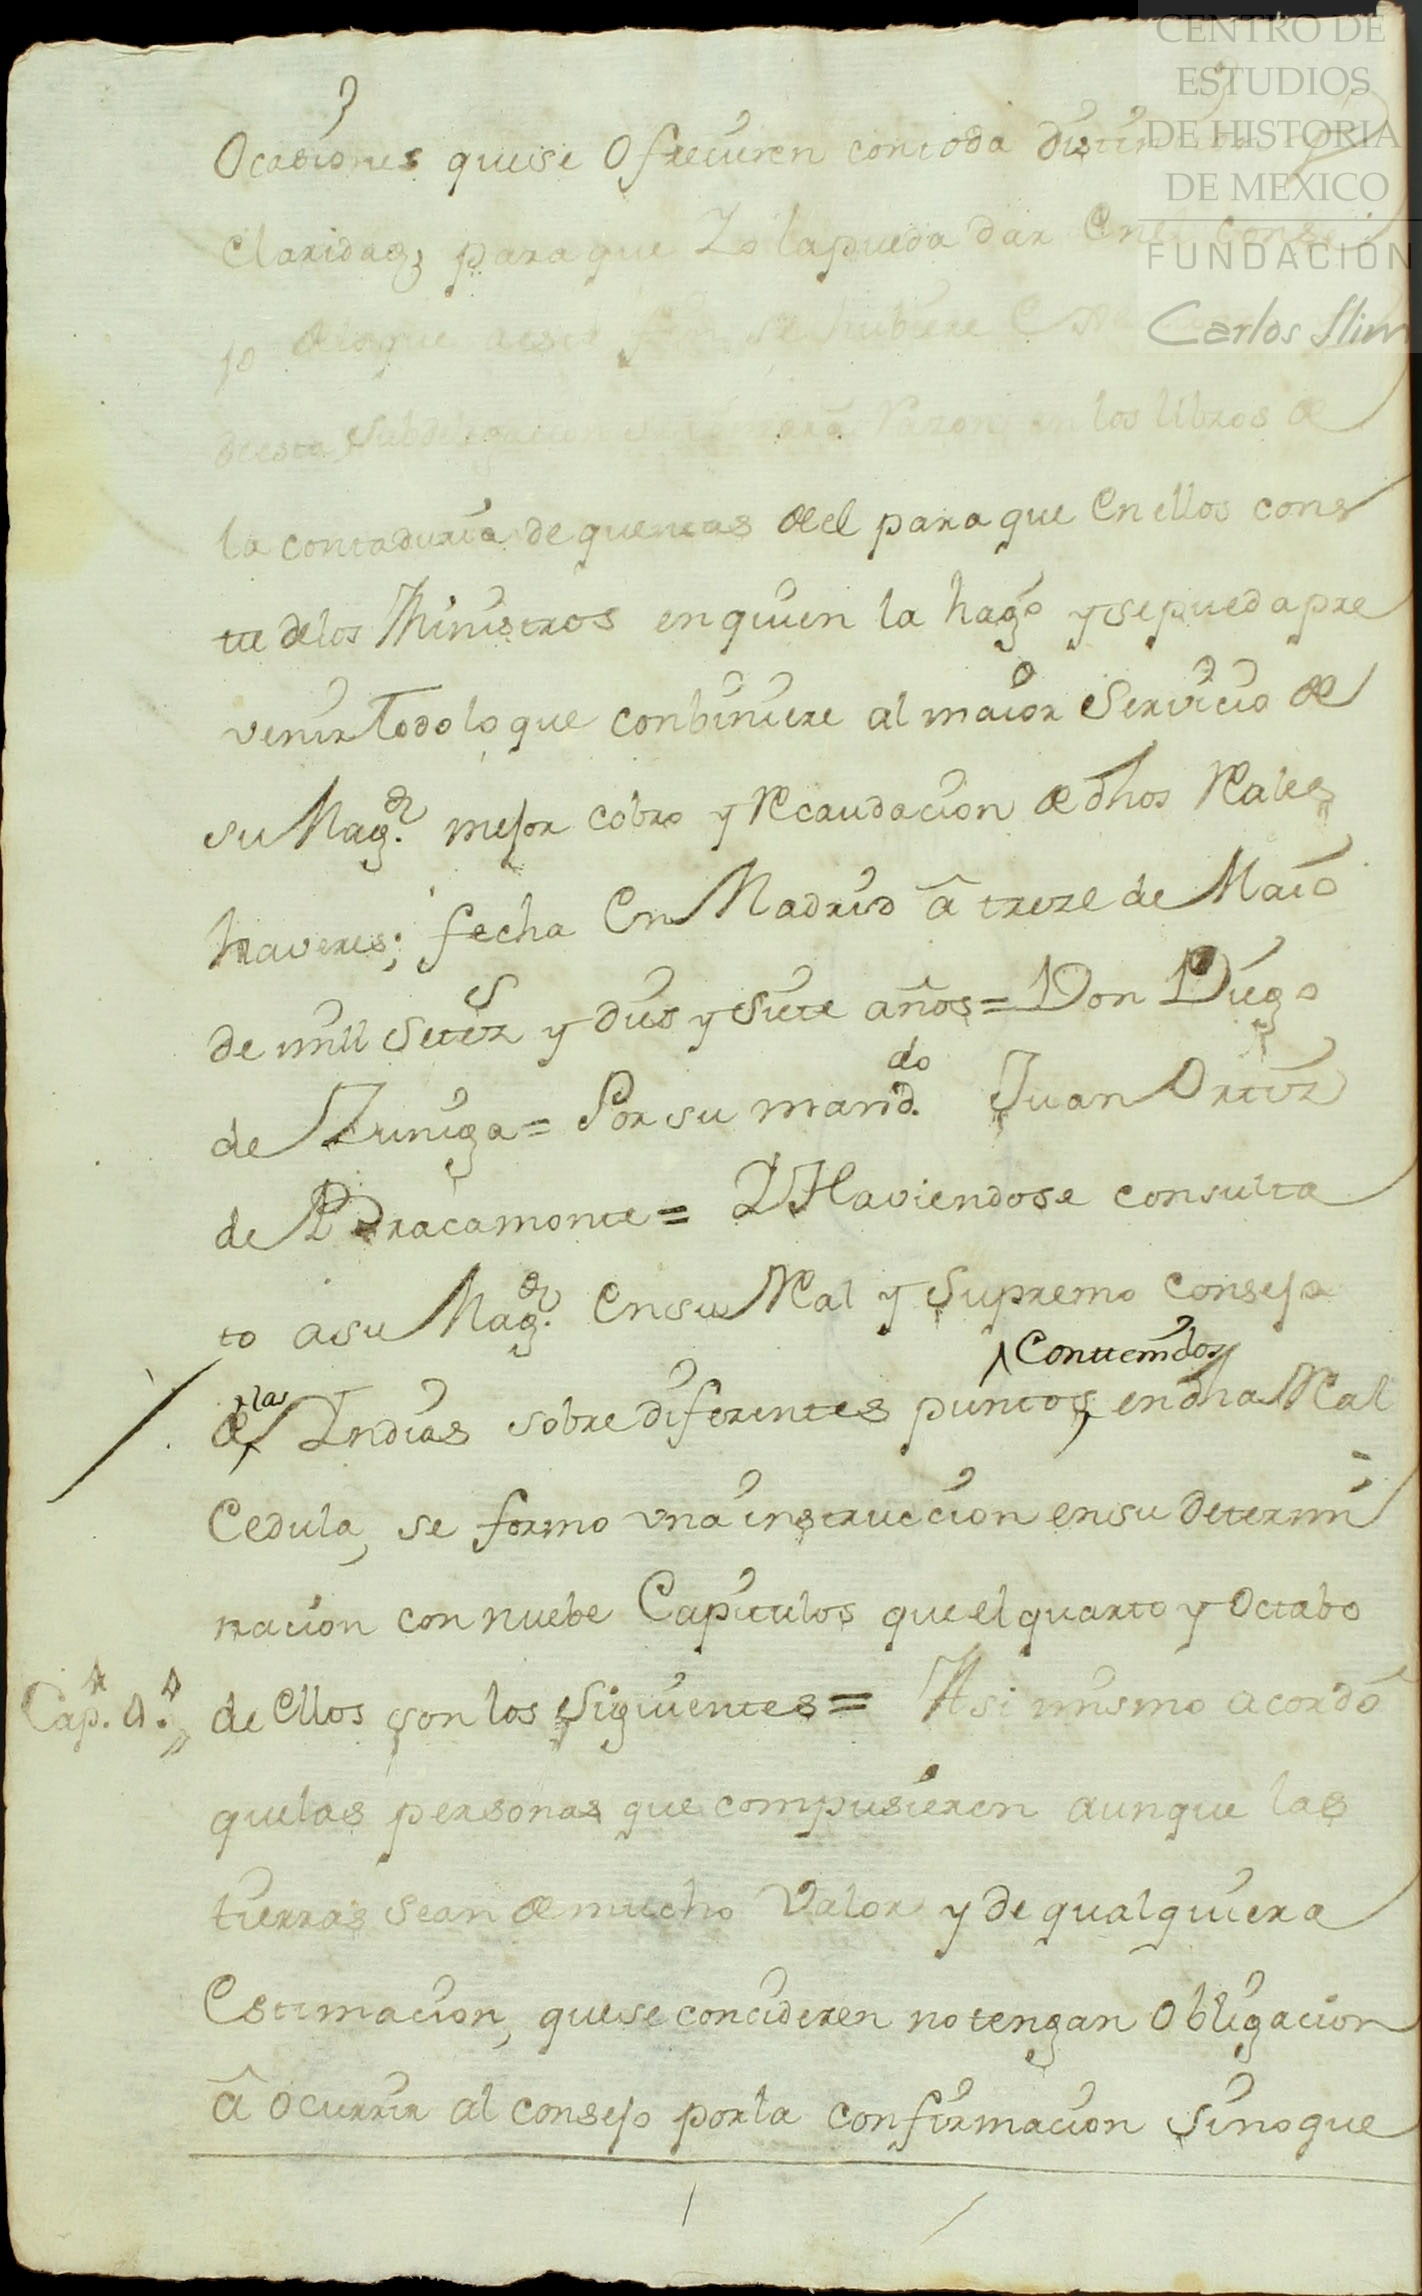 CENTRO DE
ESTUDIOS
DE HISTORIA
DE MEXICO
FUNDACIÓN
Carlos Slim
Ocasiones que se Ofrecieren con toda
Claridad, para que Yo la pueda dar En el Conse
jo de lo que se hubiere
de esta Subdelegacion razon en los libros de
la contaduria de quentas del para que En ellos cons
te de los Ministros en quien la hago y se pueda pre
venir todo lo que conbiniere al maior Servicio de
su Magd. mejor cobro y Recaudacion de dhos Rales
haveres; fecha En Madrid â treze de Maio
de mill Setezs y dies y Siete años = Don Diego
de Zuniga = Por su manddo. Juan Ortiz
de Bracamonte = Y Haviendose consulta
to a su Magd. En su Ral y Supremo Consejo
de las Indias sobre diferentes puntos, Contenidos en dha Ral
Cedula, se formo una instruccion en su determi
nacion con nuebe Capitulos que el quarto y Octabo
Cap. 4. de Ellos son los Siguientes = Asi mismo acordó
que las personas que compusieren aunque las
tierras sean de mucho Valor y de qualquiera
Estimacion, que se concideren no tengan Obligacion
â ocurrir al Consejo por la confirmacion Sino que